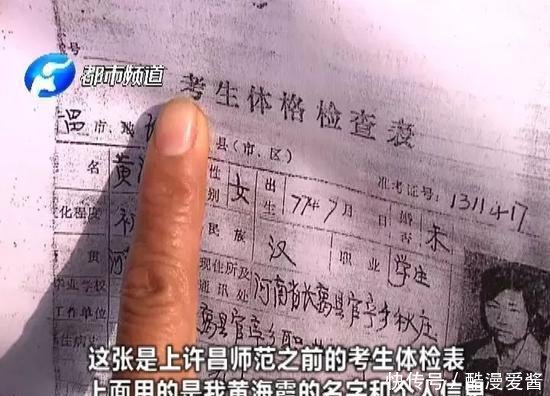 都市频道
考生体格检查表
市、
县(市、区)
准考证号:1311417
名 黄 性别 女 出生 77年7月 日 婚否 未
文化程度 初 民族 汉 职业 学生
贯 河 现住所及通讯处 河南省长葛县官亭乡秋庄
毕业学校
工作单位 葛县官亭乡职
病史
这张是上许昌师范之前的考生体检表
上面用的是我黄海霞的名字和个人信息
快传号/酷漫爱酱